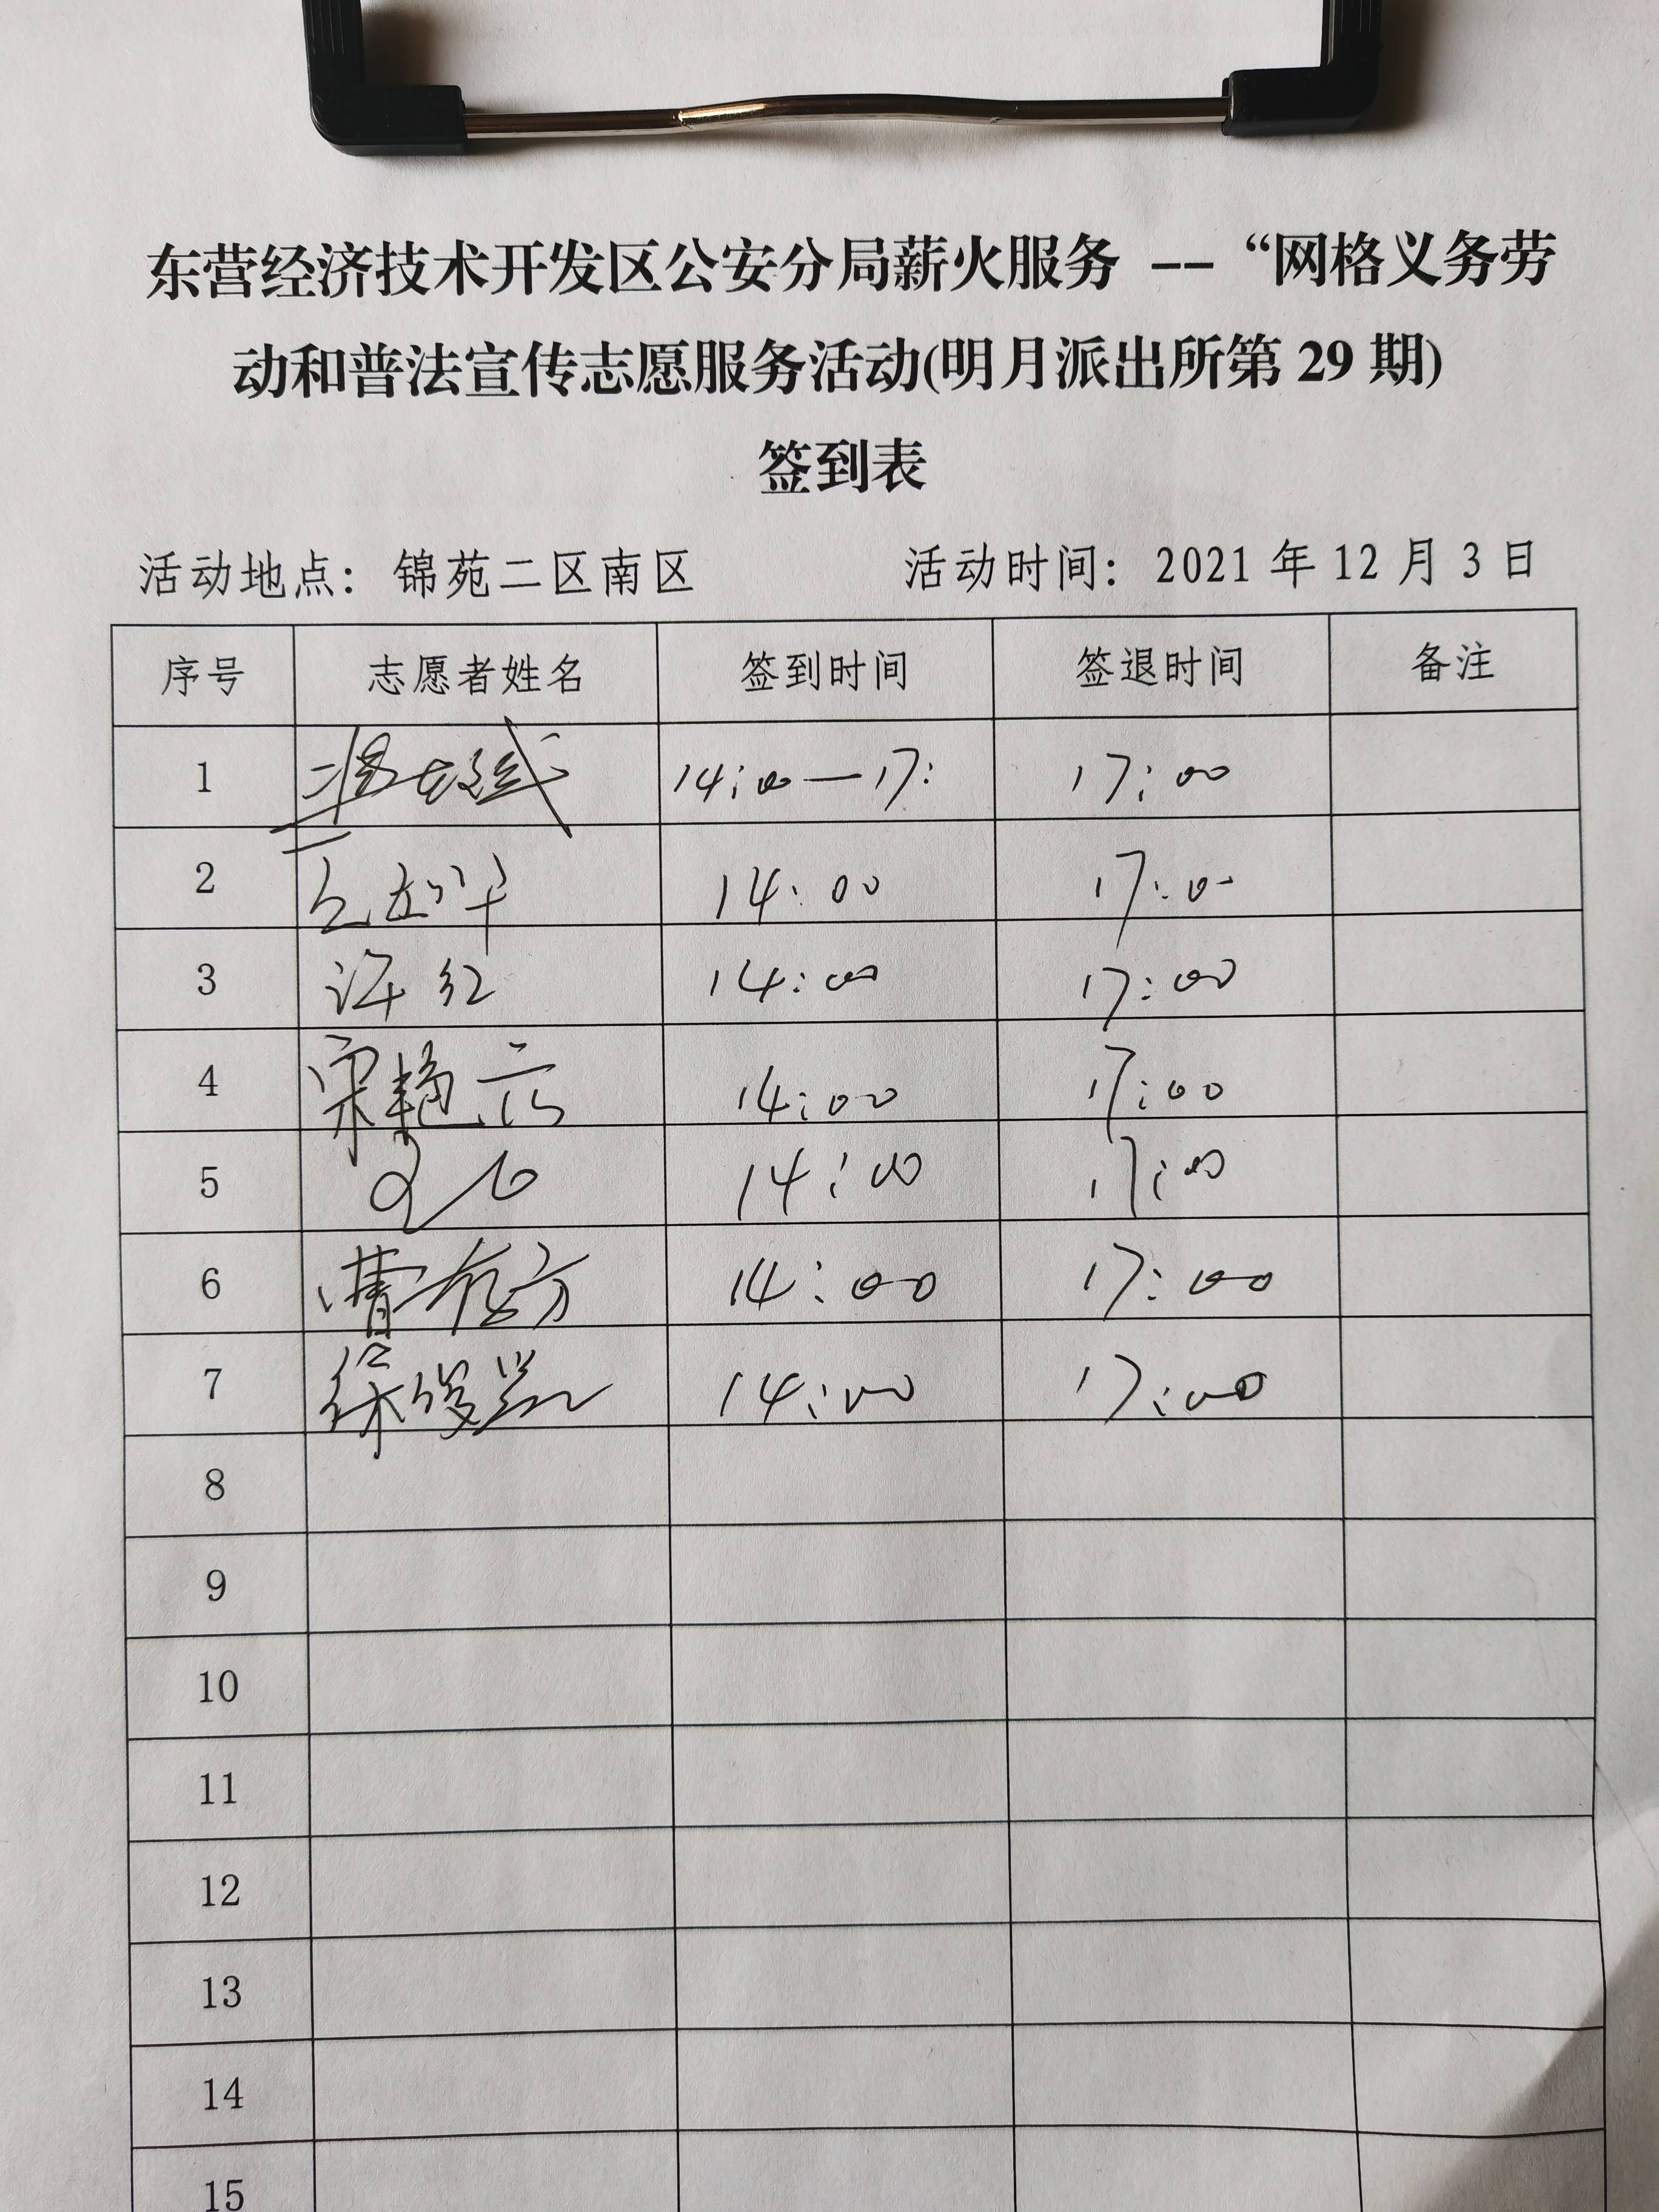 东营经济技术开发区公安分局薪火服务 --“网格义务劳
动和普法宣传志愿服务活动(明月派出所第 29 期)
签到表
活动地点：锦苑二区南区 活动时间：2021 年 12 月 3 日
序号 志愿者姓名 签到时间 签退时间 备注
1 14:00—17: 17:00
2 14:00 17:00
3 许红 14:00 17:00
4 宋艳云 14:00 17:00
5 14:00 17:00
6 曹存方 14:00 17:00
7 徐俊兴 14:00 17:00
8
9
10
11
12
13
14
15